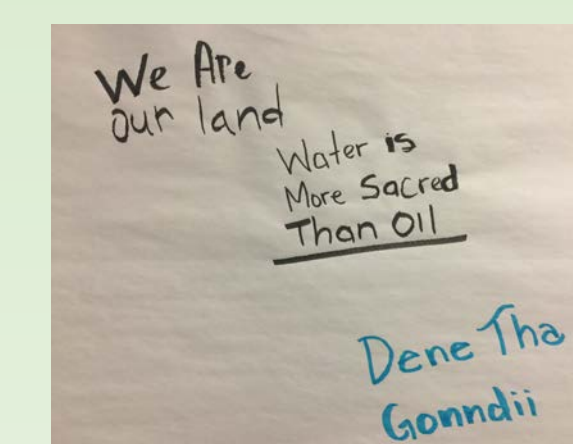 We Are
our land
Water is
More Sacred
Than OIl
Dene Tha
Gonndii